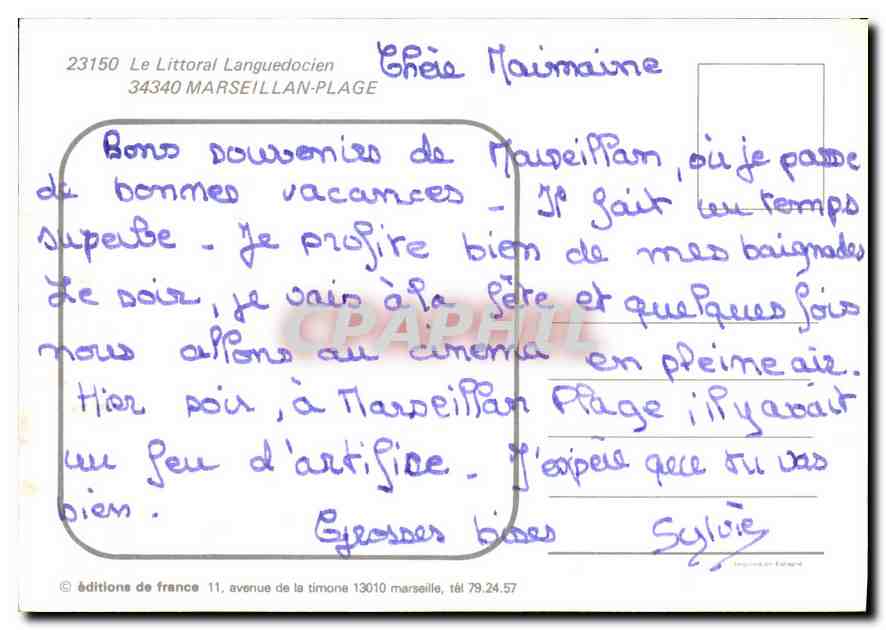 23150 Le Littoral Languedocien
34340 MARSEILLAN-PLAGE
Chère Maimaine
Bons souvenirs de Marseillan, où je passe
de bonnes vacances - Il fait un temps
superbe - Je profite bien de mes baignades
Le soir, je vais à la fête et quelques fois
nous allons au cinema en pleine air.
Hier soir, à Marseillan Plage, il y avait
un feu d'artifice - J'espère que tu vas
bien.
Grosses bises Sylvie
CPAPHIL
© éditions de france 11, avenue de la timone 13010 marseille, tél 79.24.57